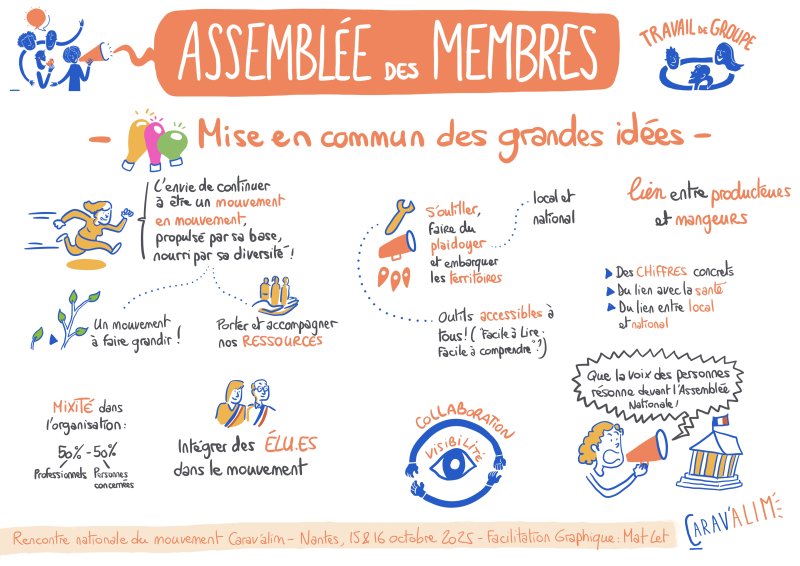 ASSEMBLÉE DES MEMBRES
TRAVAIL DE GROUPE
- Mise en commun des grandes idées -
L'envie de continuer
à être un mouvement
en mouvement,
propulsé par sa base,
nourri par sa diversité !
Un mouvement
à faire grandir !
Porter et accompagner
nos RESSOURCES
S'outiller,
faire du
plaidoyer
et embarquer
les territoires
local et
national
Outils accessibles à
tous ! ( "Facile à Lire -
Facile à comprendre" ? )
lien entre producteurs
et mangeurs
Des CHIFFRES concrets
Du lien avec la santé
Du lien entre local
et national
MIXITÉ dans
l'organisation :
50% - 50%
Professionnels
Personnes
concernées
Intégrer des ÉLU.ES
dans le mouvement
COLLABORATION
VISIBILITÉ
Que la voix des personnes
résonne devant l'Assemblée
Nationale !
CARAV'ALIM
Rencontre nationale du mouvement Caravalim - Nantes, 15 & 16 octobre 2025 - Facilitation Graphique : Mat Let